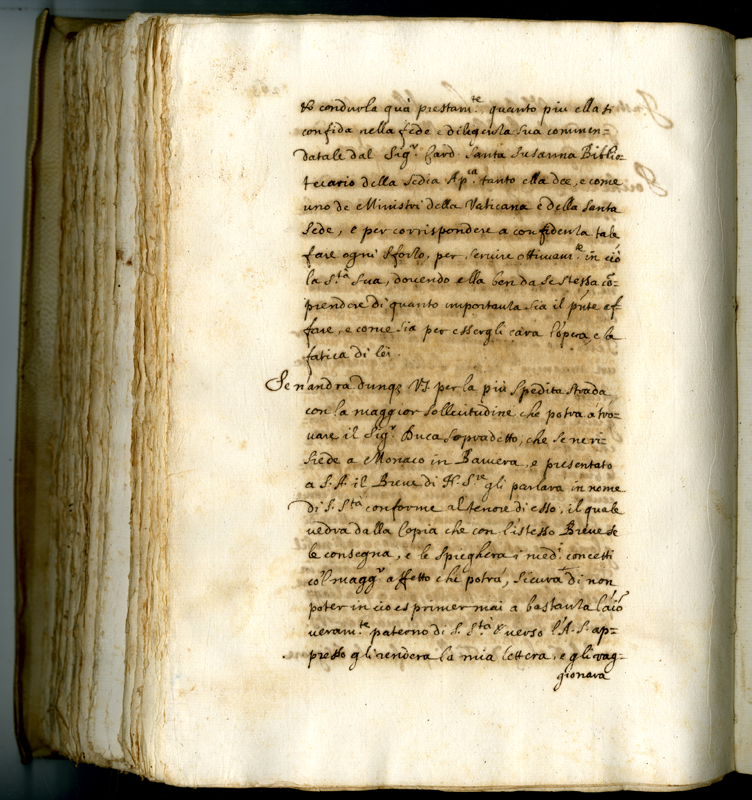 & condurla quà prestam.te quanto piu ella si
confida nella fede e diligenza sua commen-
datale dal Sig.r Card. Santa Susanna Biblio-
tecario della Sedia Ap.ca tanto ella dee, e come
uno de Ministri della Vaticana e della Santa
Sede, e per corrispondere a confidenza tale
fare ogni sforzo, per servire ottimam.te in ciò
la S.tà Sua, dovendo ella ben da se stessa cõ-
prendere di quanto importanza sia il pñte af-
fare, e come sia per essergli cara l'opera, e la
fatica di lei.
Se n'andra dunq; VS. per la più spedita strada
con la maggior sollecitudine che potra a tro-
vare il Sig.r Duca sopradetto, che se ne ri-
siede a Monaco in Baviera, e presentato
a S. A. il Breve di N. S.re gli parlara in nome
di S. S.tà conforme al tenore di esso, il quale
vedra dalla Copia che con l'istesso Breve se
le consegna, e le spieghera i med.i concetti
co'l magg.r affetto che potrà, sicura di non
poter in cio esprimer mai a bastanza
veram.te paterno di S. S.tà verso l'A. S. ap-
presso gli rendera la mia lettera, e gli rag-
gionara